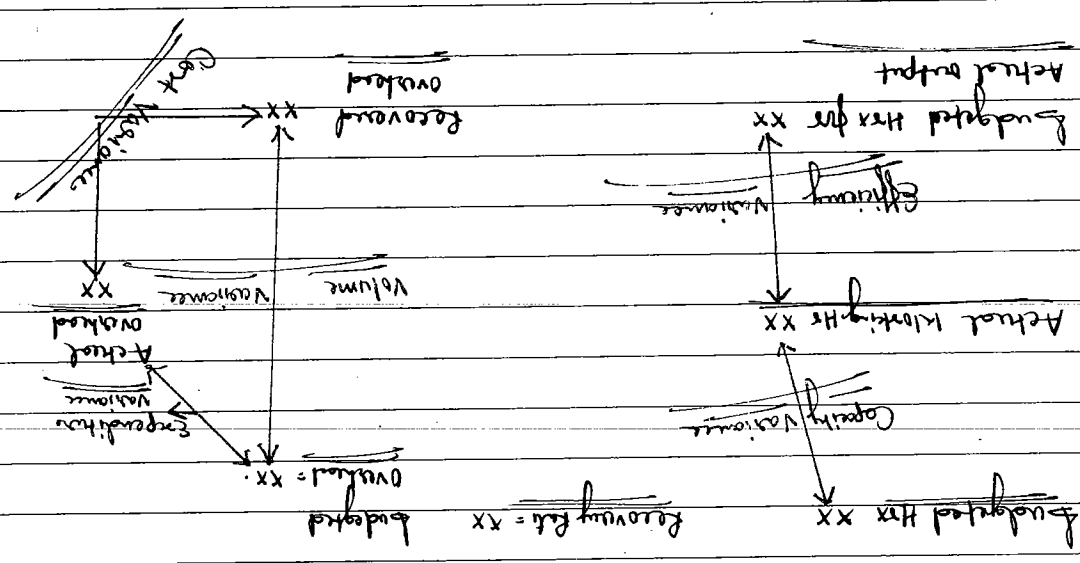 Budgeted Hrs XX Recovery Rate = XX Budgeted
Overhead = XX.
Capacity Variance
Expenditure
Variance
Actual Working Hr XX
Actual
Overhead
XX
Volume Variance
Efficiency
Variance
Cost Variance
Budgeted Hrs for XX
Actual output
Recovered XX
Overhead